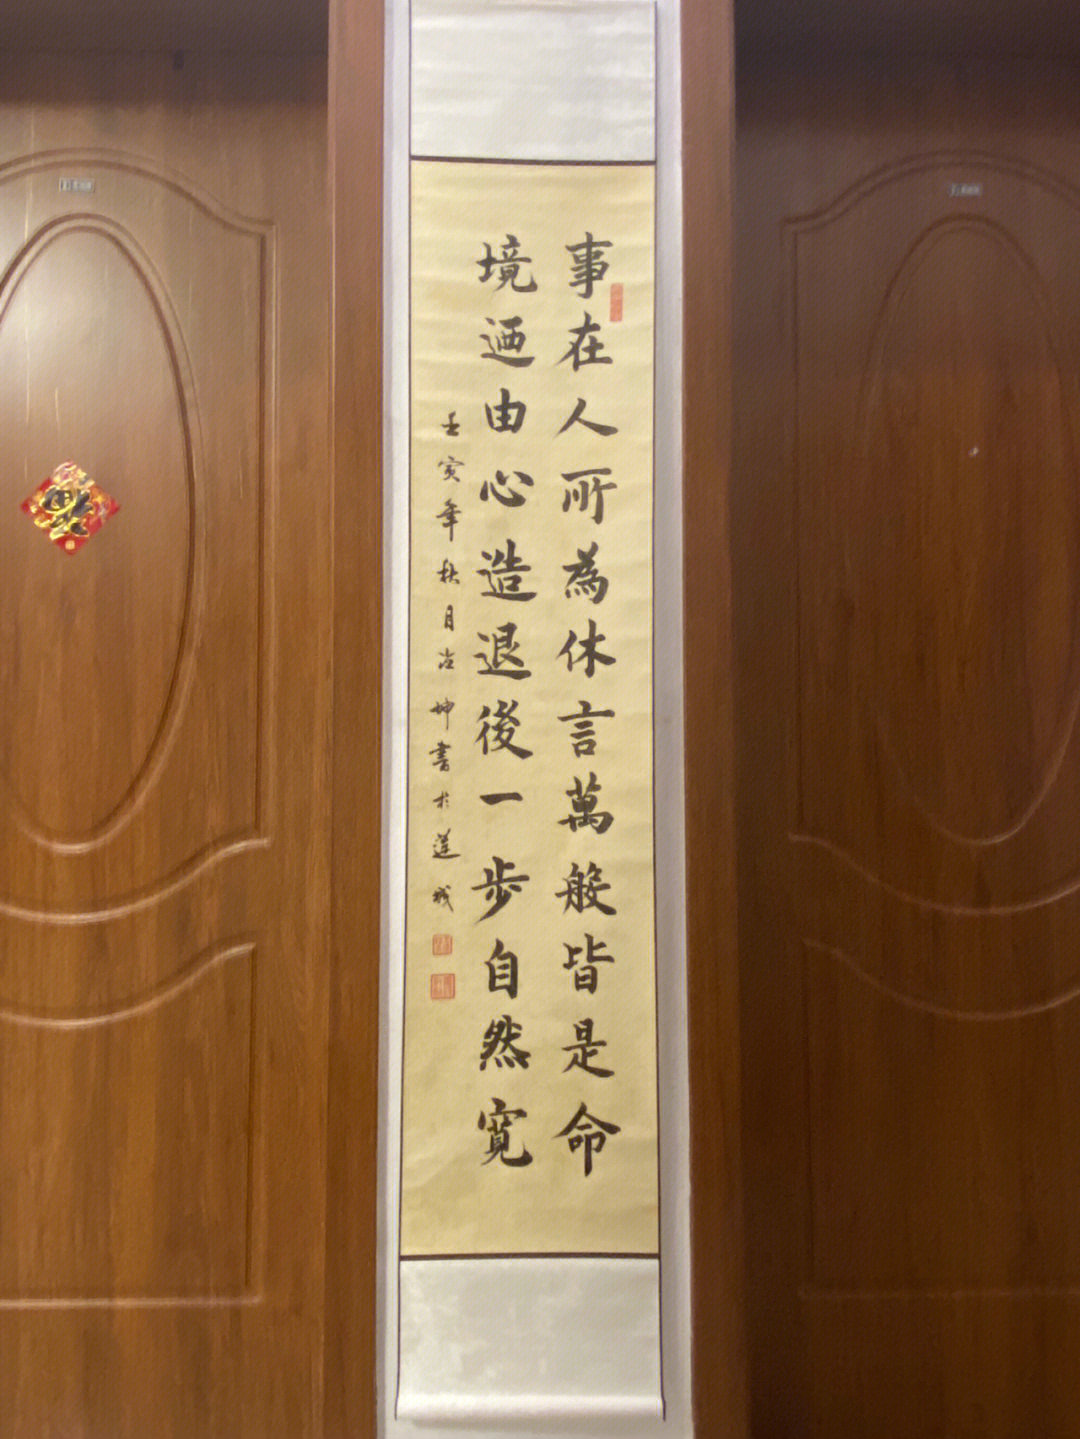 事在人所為休言萬般皆是命
境迺由心造退後一步自然寬
壬寅年秋月冶坤書於蓮城